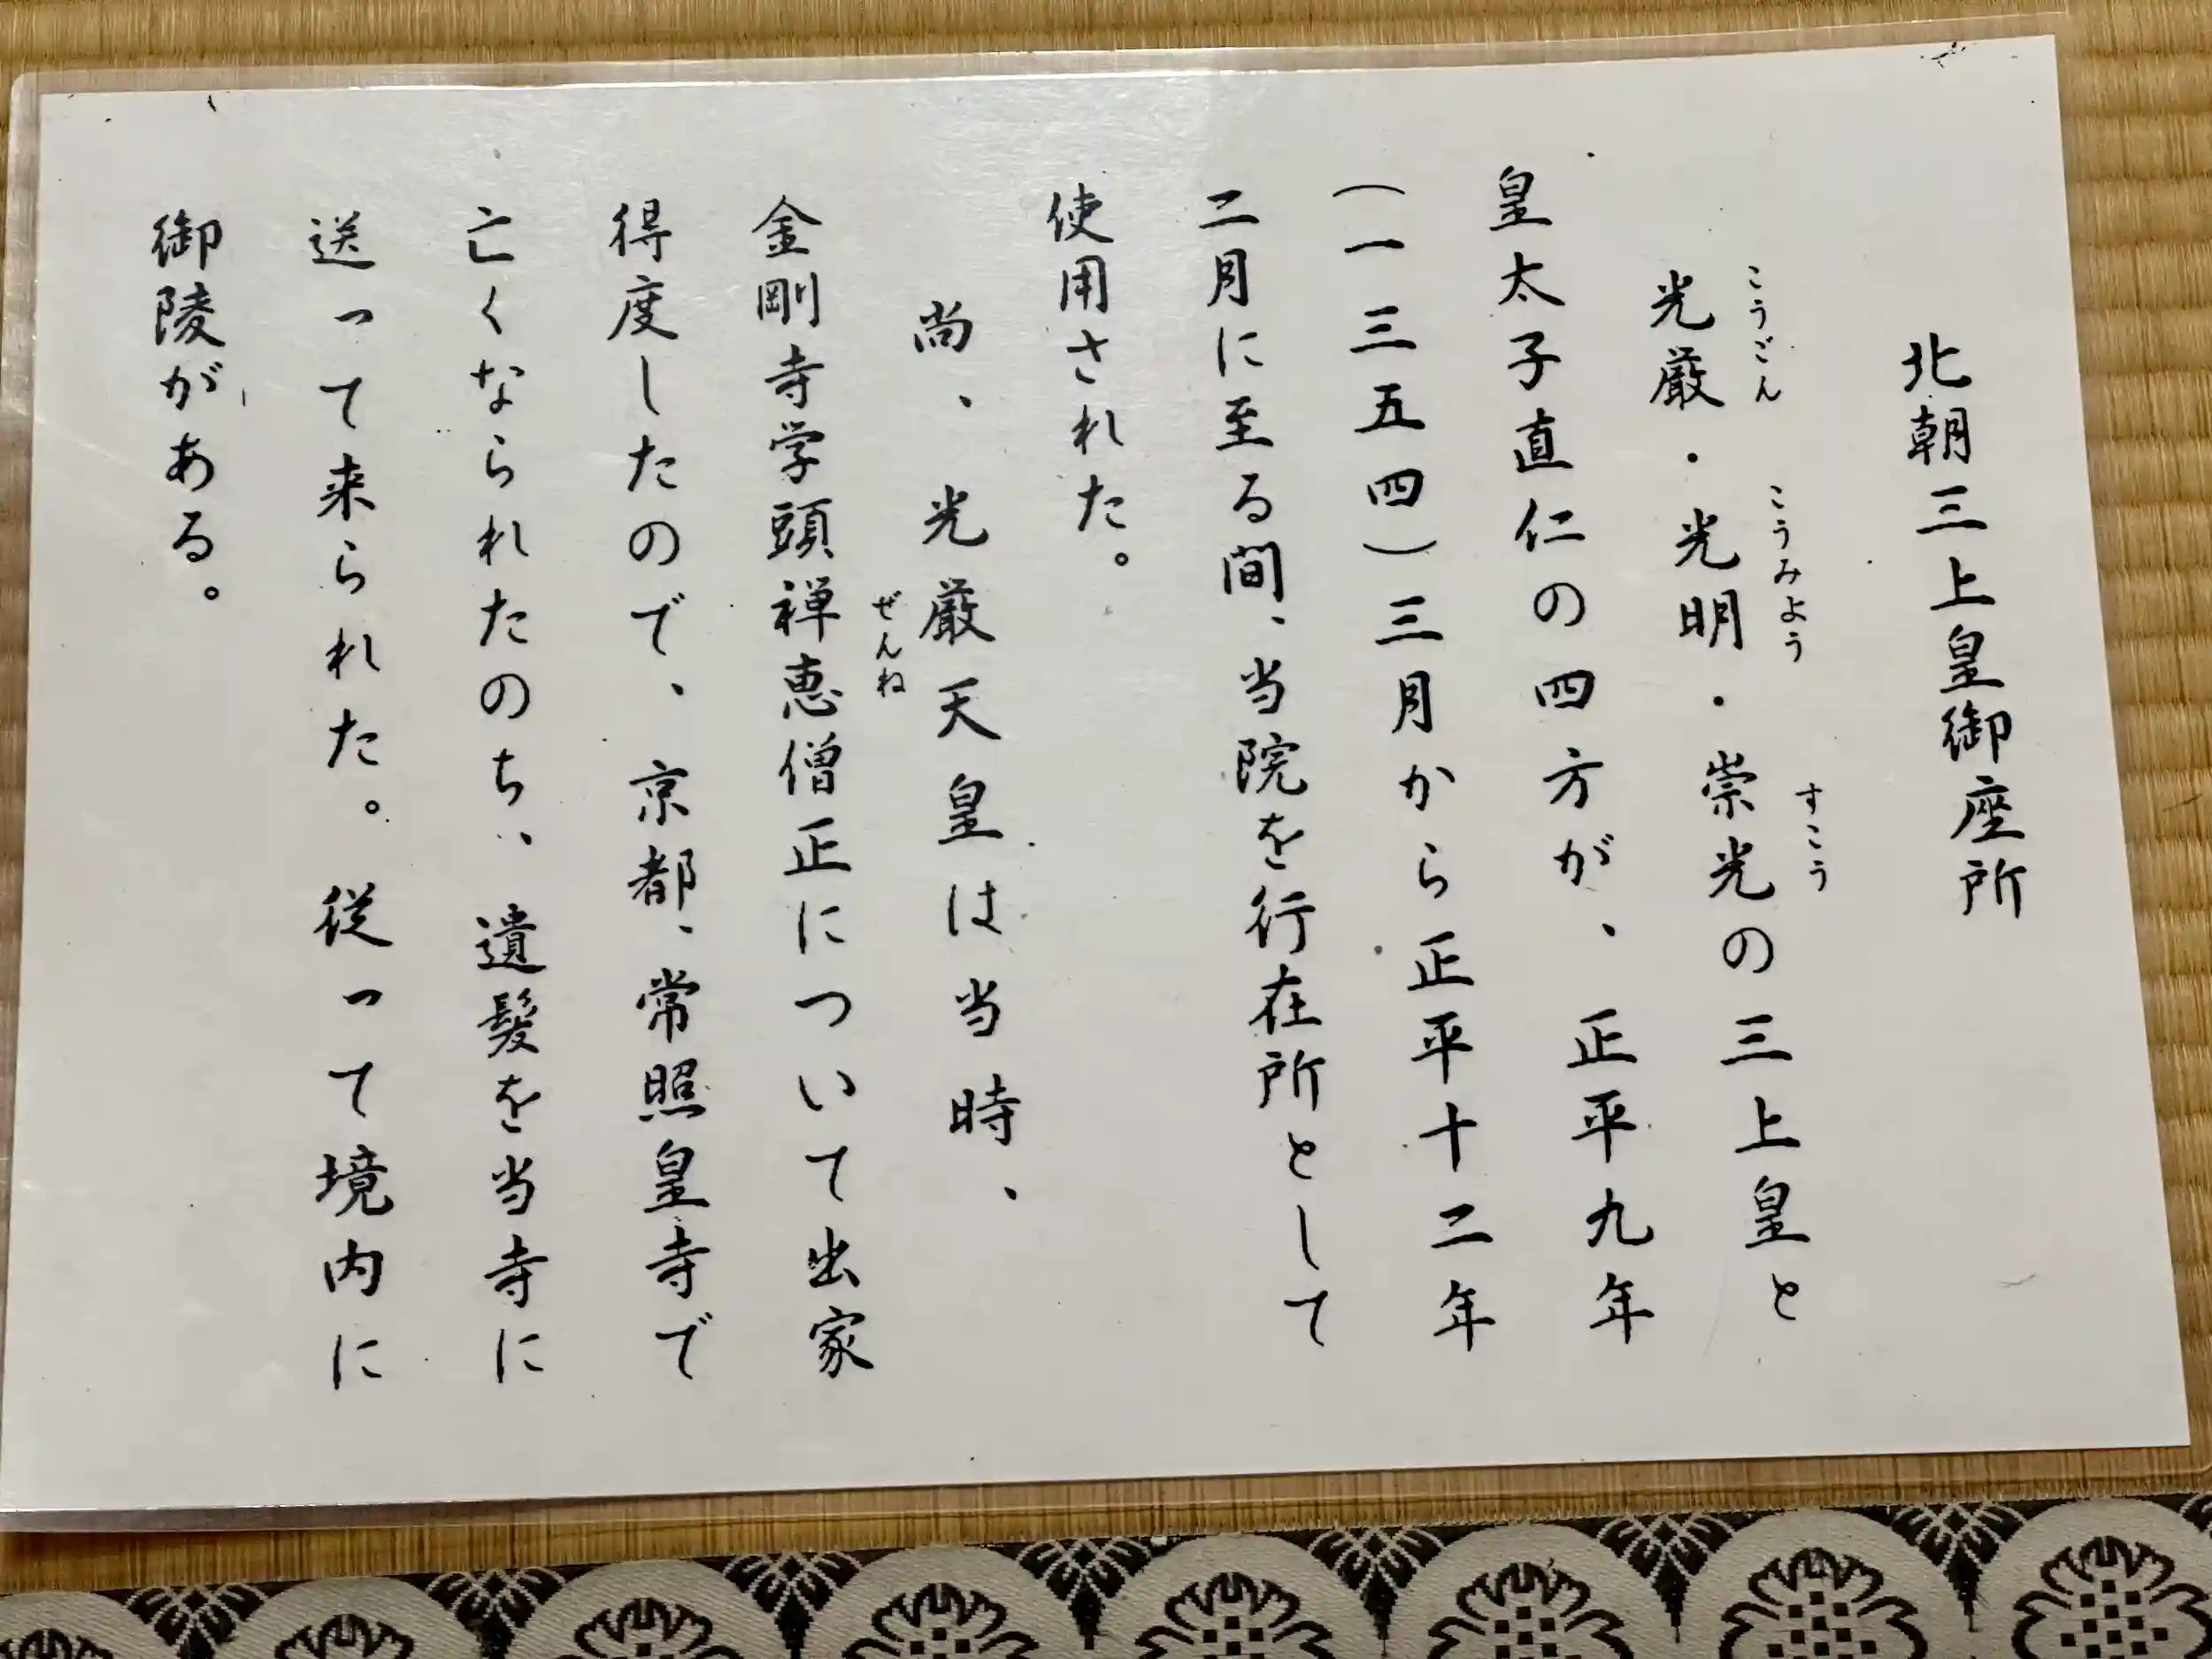 北朝三上皇御座所
光厳・光明・崇光の三上皇と
こうごん
こうみよう
すこう
皇太子直仁の四方が、正平九年
（一三五四）三月から正平十二年
二月に至る間、当院を行在所として
使用された。
尚、光厳天皇は当時、
金剛寺学頭禅恵僧正について出家
ぜんね
得度したので、京都、常照皇寺で
亡くなられたのち、遺髪を当寺に
送って来られた。従って境内に
御陵がある。